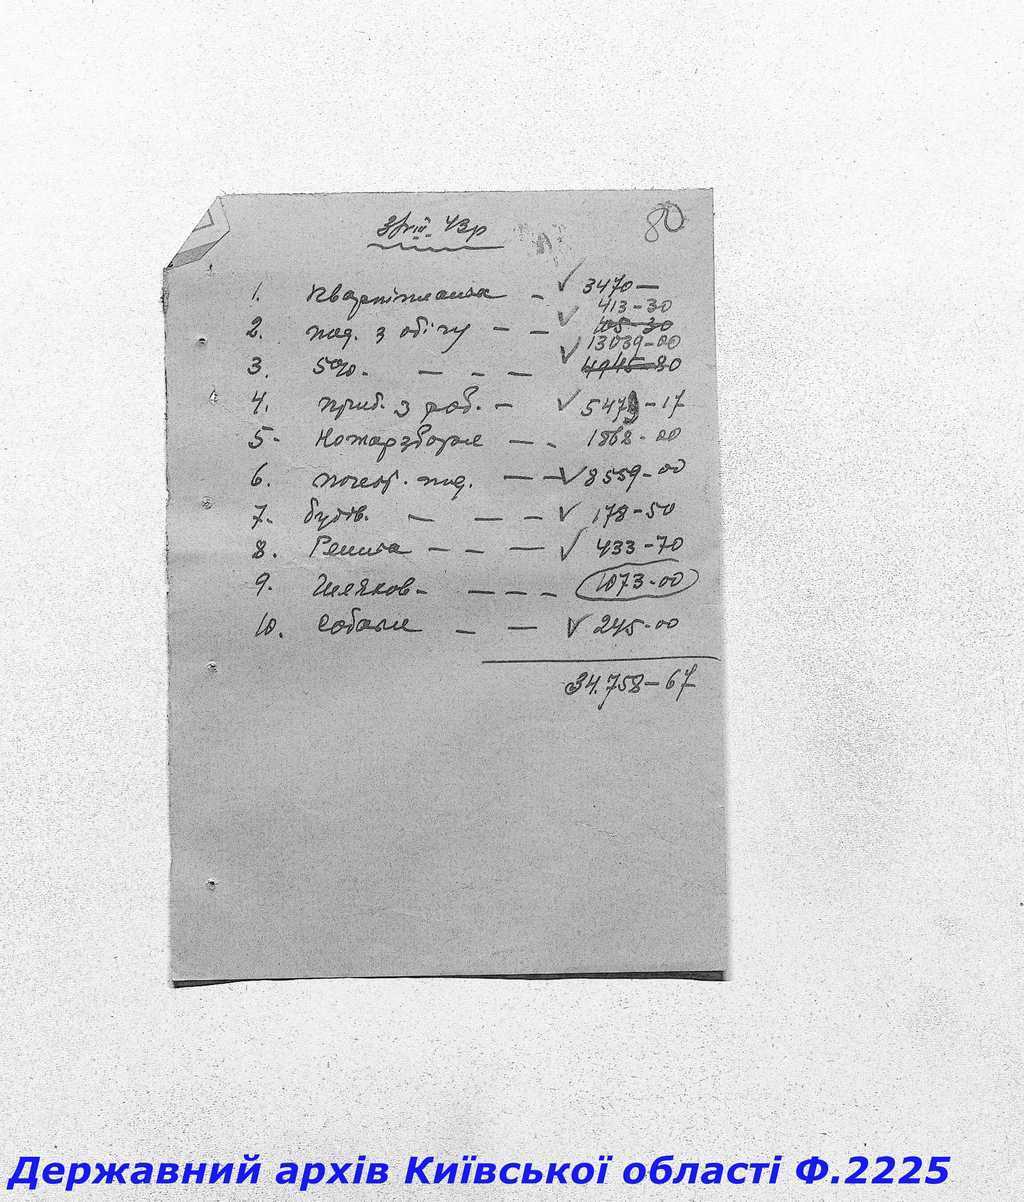 80
1. Квартплата - 3470 —
413-30
2. под. з обігу — — 105-30
13039-00
3. 5%. — - — 4945-80
4. приб. з роб. — 547 -17
5. Нотарзбори — - 1868-00
6. поч под. — — 8559-00
7. будів. — — - 178-50
8. Рента — - — 433-70
9. - — - - - 1073-00
10. Собаки — — 245-00
34.758-67
Державний архів Київської області Ф.2225